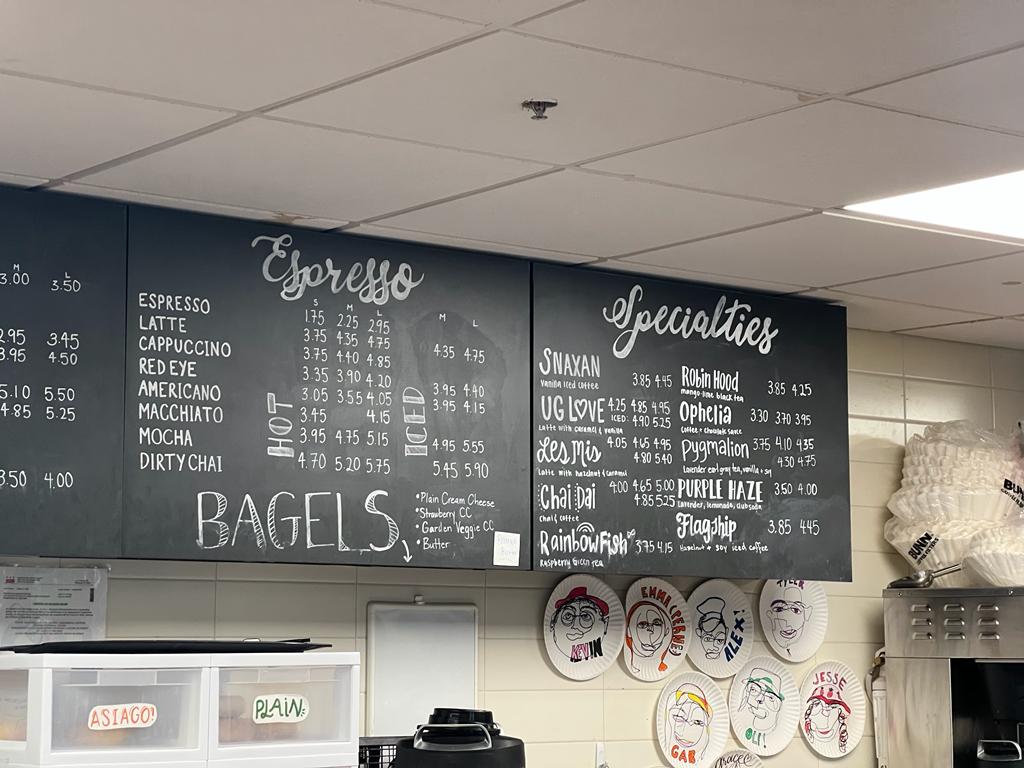 M L
3.00 3.50
2.95 3.45
3.95 4.50
5.10 5.50
4.85 5.25
3.50 4.00
Espresso
S M L
ESPRESSO 1.75 2.25 2.95
LATTE 3.75 4.35 4.75
CAPPUCCINO 3.75 4.40 4.85
RED EYE 3.35 3.90 4.20
AMERICANO 3.05 3.55 4.05
MACCHIATO 3.45 4.15
MOCHA 3.95 4.75 5.15
DIRTY CHAI 4.70 5.20 5.75
HOT
M L
4.35 4.75
3.95 4.40
3.95 4.15
4.95 5.55
5.45 5.90
ICED
BAGELS
•Plain Cream Cheese
•Strawberry CC
•Garden Veggie CC
•Butter
Specialties
SNAXAN 3.85 4.45
Vanilla iced coffee
UG LOVE 4.25 4.85 4.95
ICED: 4.90 5.25
Latte with caramel & vanilla
Les Mis 4.05 4.65 4.95
4.80 5.40
Latte with hazelnut & caramel
Chai Dai 4.00 4.65 5.00
4.85 5.25
Chai & coffee
Rainbow Fish 3.75 4.15
Raspberry Green tea
Robin Hood 3.85 4.25
mango-lime black tea
Ophelia 3.30 3.70 3.95
Coffee + chocolate sauce
Pygmalion 3.75 4.10 4.35
4.30 4.75
Lavender earl grey tea, vanilla + soy
PURPLE HAZE 3.50 4.00
Lavender, lemonade, club soda
Flagship 3.85 4.45
Hazelnut + soy iced coffee
ASIAGO!
PLAIN
KEVIN
EMMA SPERNEY
ALEX!
TYLER
GAB
OLF!
JESSE
BUNN
BUNN